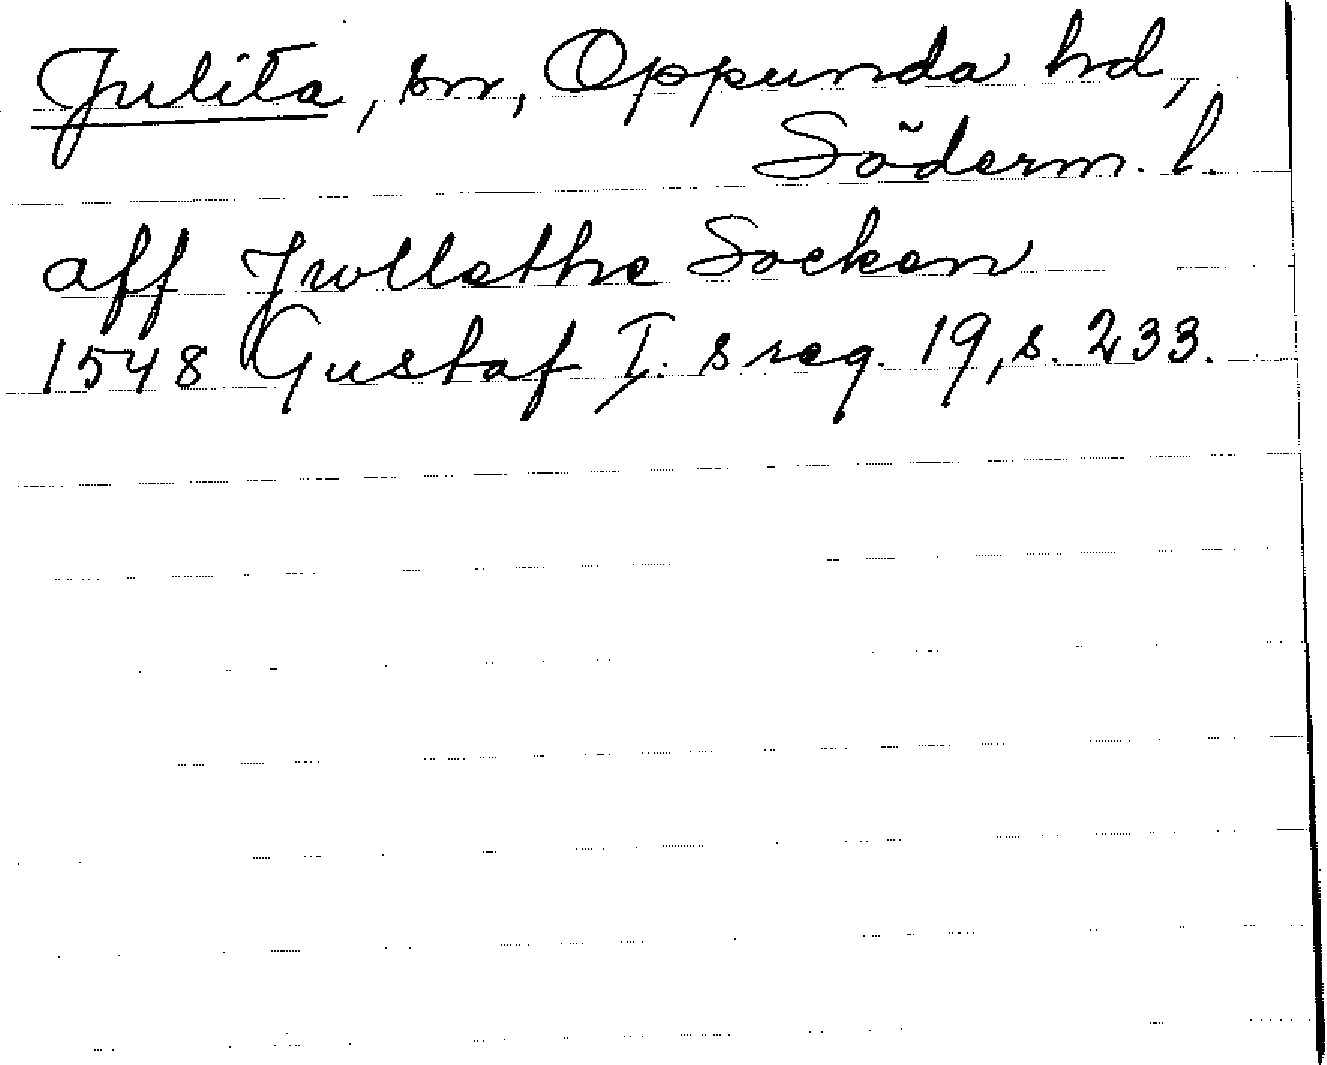 Julita, sn, Oppunda hd,
Söderm. l.
aff Jwllethe Socken
1548 Gustaf I. s reg. 19, s. 233.